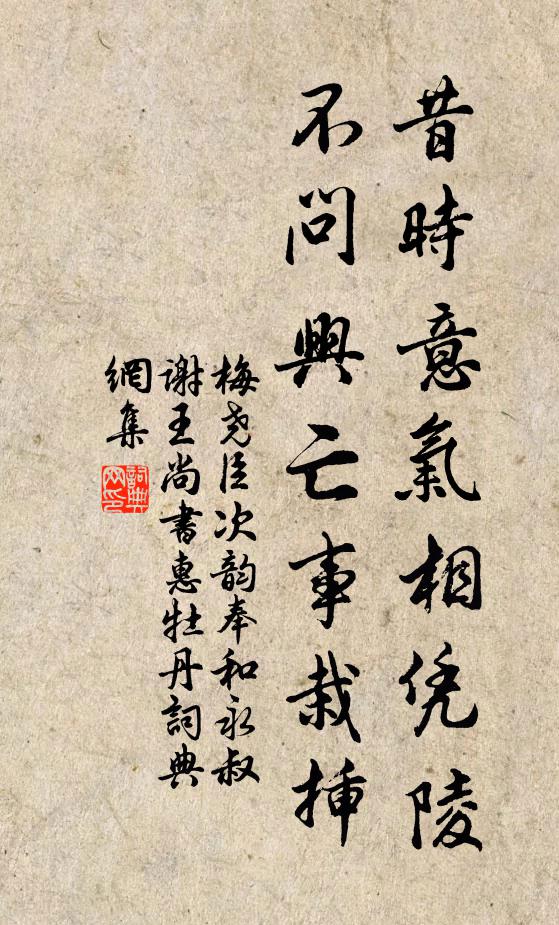 昔時意氣相凭陵
不問興亡事栽揷
梅尧臣次韵奉和永叔
谢王尚書惠牡丹詞典
網集
詞典網印